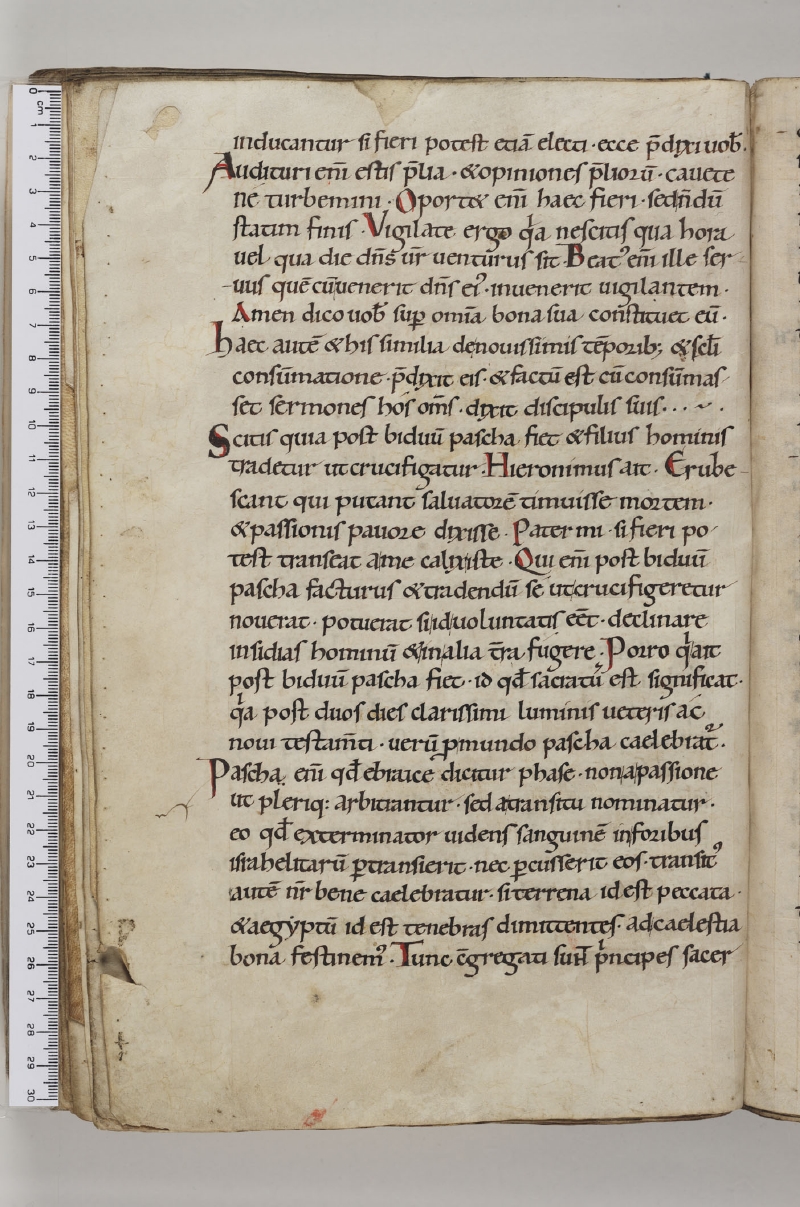 inducantur si fieri potest etiā electi · ecce p̄dixi uob̄.
Audituri em̄ estis p̄lia · & opiniones p̄lioꝝ ū · cauete
ne turbemini · Oport& em̄ haec fieri · sed n̄dū
statim finis · Vigilate ergo qͥa nescitis qua hora
uel qua die dn̄s ur̄ uenturus sit · Beatꝰ em̄ ille ser
uus quē cū uenerit dn̄s eiꝰ · inuenerit uigilantem ·
Amen dico uob̄ sup̄ om̄ia bona sua constituet eū ·
haec autē & his similia de nouissimis tēporib; & sc̄li
consūmatione · p̄dixit eis · & factū est cū consūmas
set sermones hos om̄s · dixit discipulis suis · · · ~ ·
Scitis quia post biduū pascha fiet & filius hominis
tradetur ut crucifigatur · Hieronimus ait · Erube
scant qui putant saluatorē timuisse mortem ·
& passionis pauore dixisse · Pater mi · si fieri po
test transeat a me calix iste · Qui em̄ post biduū
pascha facturus & tradendū se ut crucifigeretur
nouerat · potuerat si id uoluntatis eēt · declinare
insidias hominū & in alia t̄ra fugere · Porro qͥ ait
post biduū pascha fiet · id qd̄ sacratū est significat ·
qͥa post duos dies clarissimi luminis ueteris ac
noui testam̄ti · uerū ꝑ mundo pascha caelebrat᷑ ·
Pascha em̄ qd̄ ebraice dicitur phase · non a passione
ut pleriq: arbitrantur · sed a transitu nominatur ·
eo qd̄ exterminator uidens sanguinē in foribus
israhelitarū ꝑtransierit · nec ꝑcusserit eos · transitꝰ
autē nr̄ bene caelebratur · si terrena id est peccata ·
& aegyptū id est tenebras dimittentes · ad caelestia
bona festinemꝰ · Tunc c̄gregati sunt pͥncipes sacer